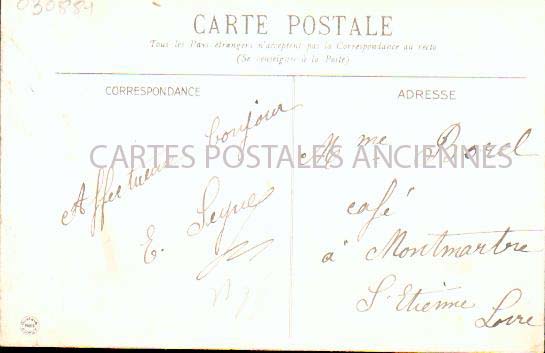 030884
CARTE POSTALE
Tous les Pays étrangers n'acceptent pas la Correspondance au recto
(Se renseigner à la Poste)
CORRESPONDANCE
Affectueux bonjour
E. Seyve
ADRESSE
Mme Borel
café
à Montmartre
St Etienne
Loire
CARTES POSTALES ANCIENNES